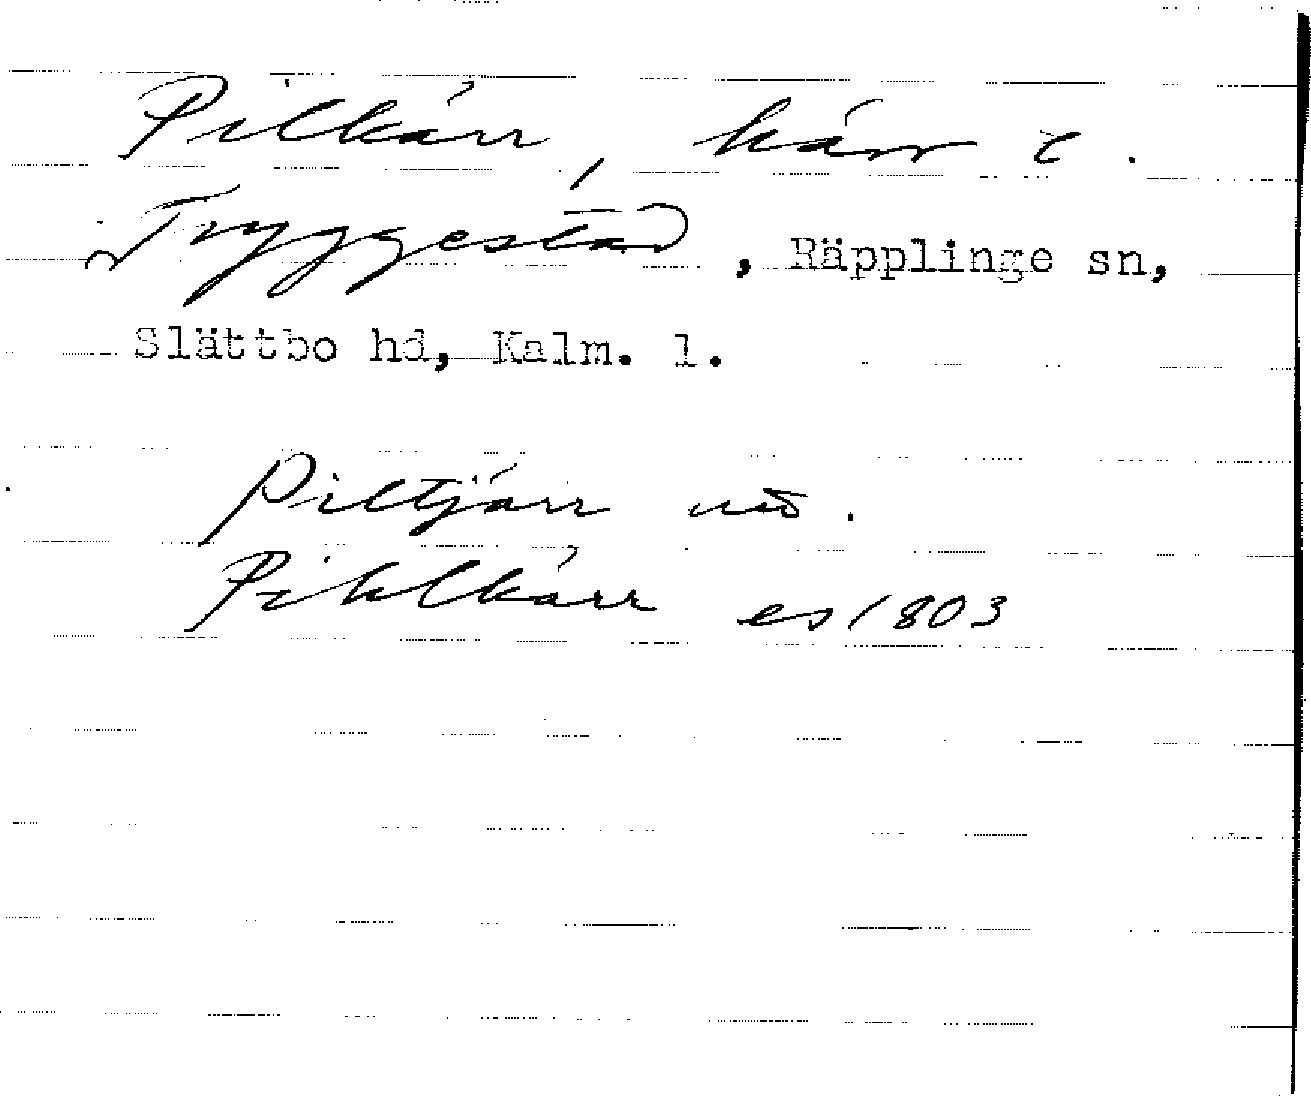 Pilkärr, kärr i.
Tryggestad, Räpplinge sn,
Slättbo hd, Kalm. l.
Piltjärr ud.
Pihlkärr es 1803